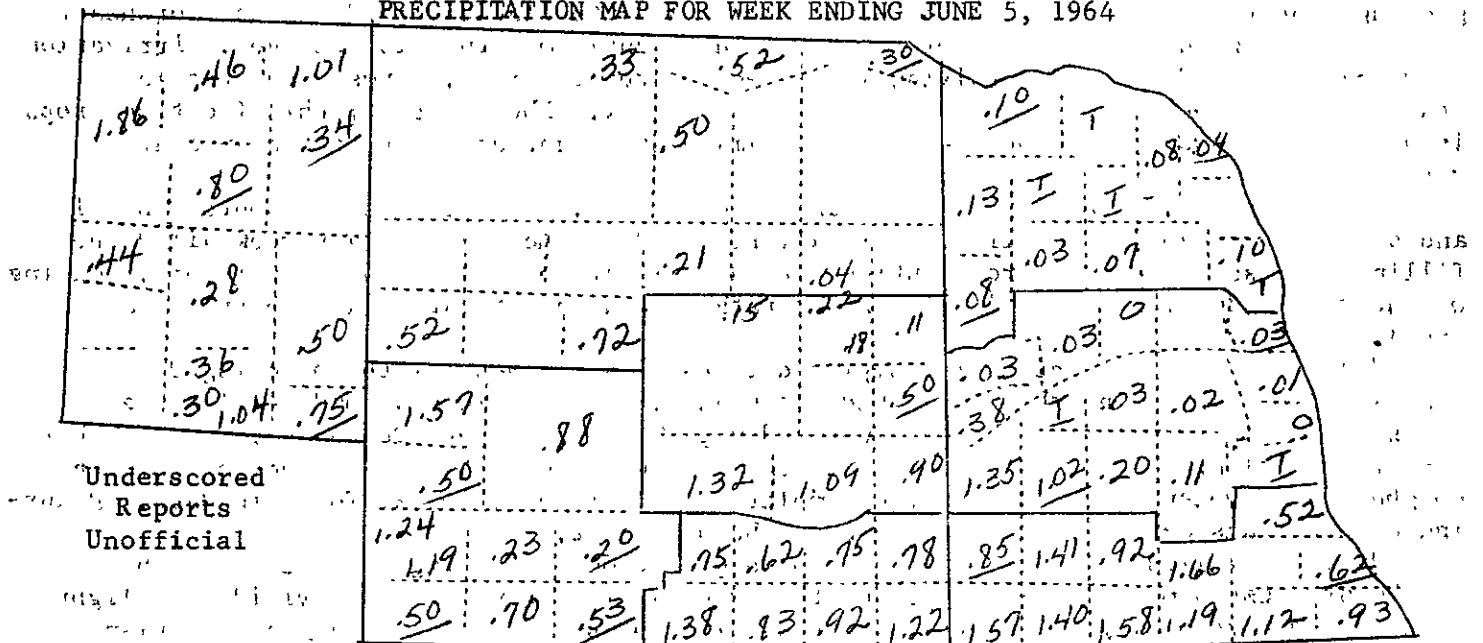 PRECIPITATION MAP FOR WEEK ENDING JUNE 5, 1964
.46 1.01 .33 .52 .30
1.86 .34 .50 .10 T
.80 .08 .04
.13 T T
.44 .28 .21 .04 .03 .07 .10
.15 .22 .08 T
.50 .52 .72 .18 .11 .03 0 .03
.36 .03
.30 1.04 .75 1.57 .88 .50 .38 T .03 .02 .01
0
.50 1.32 1.09 .90 1.35 1.02 .20 .11 T
Underscored
Reports
Unofficial
1.24 .52
1.19 .23 .20 .75 .62 .75 .78 .85 1.41 .92 1.66 .62
.50 .70 .53 1.38 .83 .92 1.22 1.57 1.40 1.58 1.19 1.12 .93